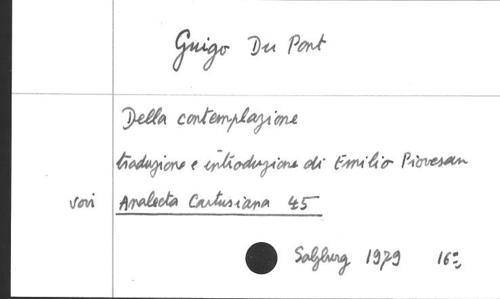 Guigo Du Pont
Della contemplazione
traduzione e introduzione di Emilio Piovesan
Analecta Cartusiana 45
Salzburg 1979 16°